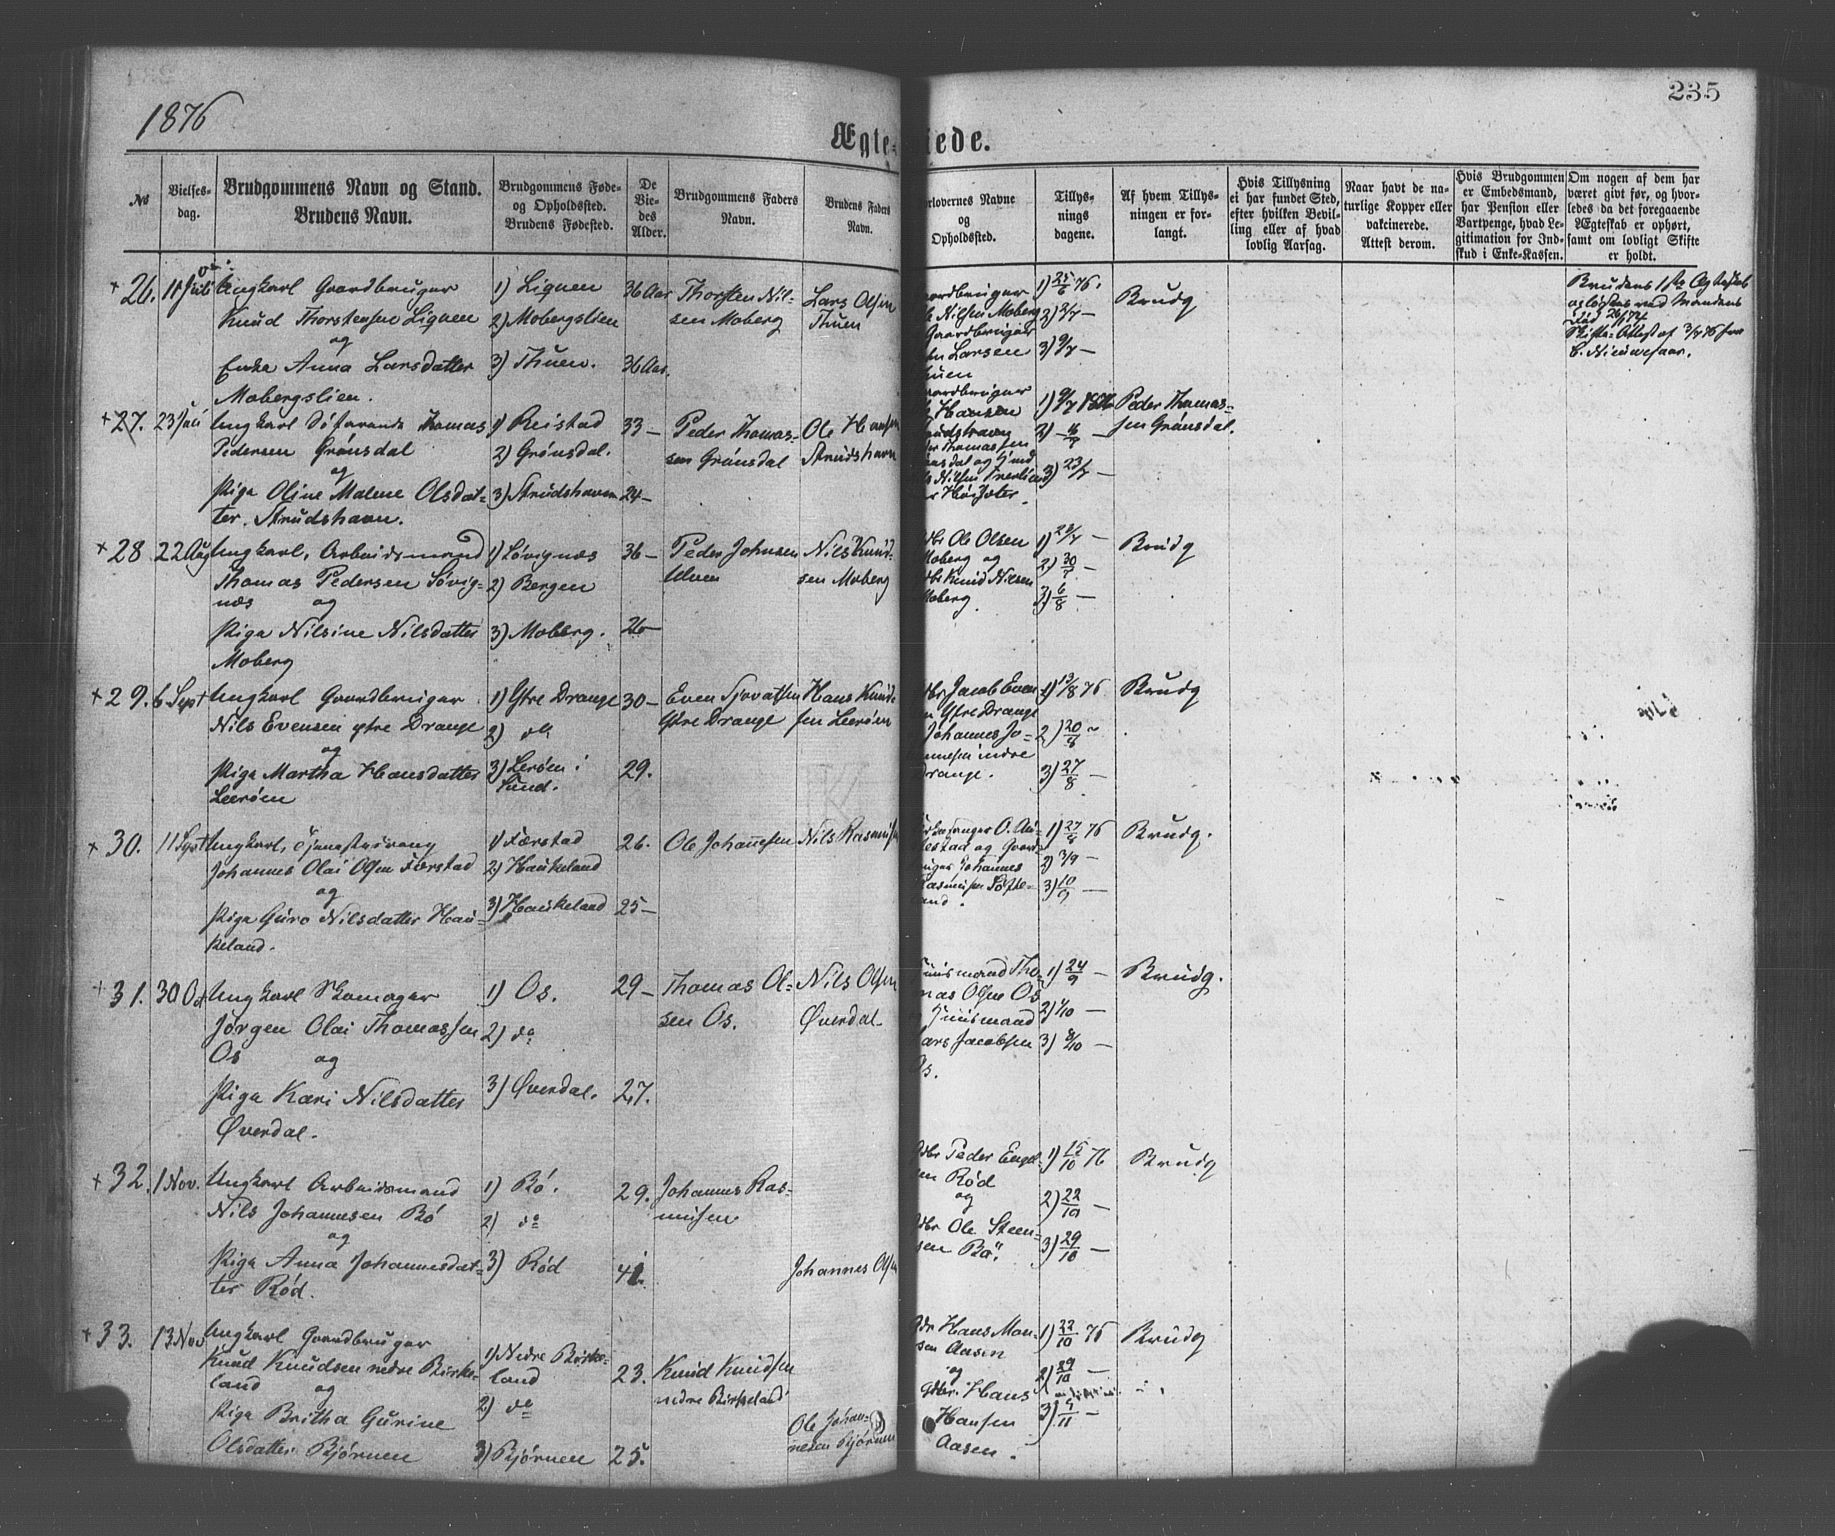 1876
235
Ægte- iede.
№
Vielses-
dag.
Brudgommens Navn og Stand.
Brudens Navn.
Brudgommens Føde-
og Opholdssted.
Brudens Fødested.
De
Vie-
des
Alder.
Brudgommens Faders
Navn.
Brudens Faders
Navn.
orlovernes Navne
og
Opholdssted.
Tillys-
nings
dagene.
Af hvem Tillys-
ningen er for-
langt.
Hvis Tillysning
ei har fundet Sted,
efter hvilken Bevil-
ling eller af hvad
lovlig Aarsag.
Naar havt de na-
turlige Kopper eller
vakcinerede.
Attest derom.
Hvis Brudgommen
er Embedsmand,
har Pension eller
Vartpenge, hvad Le-
gitimation for Ind-
skud i Enke-Kassen.
Om nogen af dem har
været givt før, og hvor-
ledes da det foregaaende
Ægteskab er ophørt,
samt om lovligt Skifte
er holdt.
+ 26. 11 Juli
Ungkarl Gaardbruger
Knud Thorstensen Liguen
og
Enke Anna Larsdatter
Mobergslien.
1) Liguen
2) Mobergslien
3) Thuen.
36 Aar
36 Aar.
Thorsten Nil-
sen Moberg
Lars Olsen
Thuen
aardbruger
le Nilsen Moberg
Gaardbruger
en Larsen
huen
1) 25/6 76.
2) 2/7 —
3) 9/7 —
Brudg
Brudens 1ste Ægteskab
opløstes ved Mandens
Død 26/1 74
Skifte-Attest af 3/7 76 fra
+ 27. 23 Juli
Ungkarl Søfarende Thomas
Pedersen Grønsdal
og
Pige Oline Malene Olsdat-
ter. Strudshavn.
1) Reistad
2) Grønsdal.
3) Strudshavn
33 —
24 —
Peder Thomas-
sen Grønsdal
Ole Hansen
Strudshavn
aardbruger
Hansen
trudshavn
er Thomassen
nsdal og
1) 9/7 1876
2) 16/7 —
3) 23/7 —
Peder Thomas-
sen Grønsdal.
+ 28 22 Aug
Ungkarl, Arbeidsmand
Thomas Pedersen Søvig-
næs og
Pige Nilsine Nilsdatter
Moberg
1) Søvignæs
2) Bergen
3) Moberg.
36 —
26 —
Peder Johnsen
Nils Knud-
sen Moberg
dbr Ole Olsen
Moberg og
dbr Knud Nilsen
Moberg.
1) 23/7 —
2) 30/7 —
3) 6/8 —
Brudg
+ 29. 6 Sept
Ungkarl Gaardbruger
Nils Evensen ytre Drange
og
Pige Martha Hansdatter
Leerøen
1) Ytre Drange
2) do
3) Lerøen i
Sund.
30 —
29.
Even Sjovatsen
Ytre Drange
Hans Knud-
sen Leerøen
dbr Jacob Even
n Ytre Drange
Johannes Jo-
annesen indre
Drange.
1) 13/8 76
2) 20/8 —
3) 27/8 —
Brudg
+ 30. 11 Sept
Ungkarl, Tjenestedreng
Johannes Olai Olsen Færstad
og
Pige Guro Nilsdatter Hau-
keland.
1) Færstad
2) Haukeland
3) Haukeland
26.
25 —
Ole Johannesen
Nils Rasmusen
irkesanger O. An-
estad og Gaard-
ruger Johannes
Rasmusen
land.
1) 27/8 76
2) 3/9 —
3) 10/9 —
Brudg.
+ 31. 30 Oct
Ungkarl Skomager
Jørgen Olai Thomassen
Os og
Pige Kari Nilsdatter
Øverdal.
1) Os.
2) do
3) Øverdal.
29 —
27.
Thomas Ol-
sen Os.
Nils Olsen
Øverdal
Huusmand Tho-
mas Olsen Os
Huusmand
Lars Jacobsen
Os.
1) 24/9 —
2) 1/10 —
3) 8/10 —
Brudg.
+ 32. 1 Nov.
Ungkarl Arbeidsmand
Nils Johannesen Bø
og
Pige Anna Johannesdat-
ter Rød.
1) Bø.
2) do
3) Rød
29.
41.
Johannes Ras-
musen
Johannes Olsen
dbr Peder Engel-
en Rød
og
dbr Ole Steen-
sen Bø.
1) 15/10 76
2) 22/10 —
3) 29/10 —
Brudg
+ 33. 13 Nov
Ungkarl Gaardbruger
Knud Knudsen nedre Birke-
land og
Pige Britha Gurine
Olsdatter Bjørnen
1) Nedre Birke-
land
2) do
3) Bjørnen
23.
25.
Knud Knudsen
nedre Birkeland
Ole Johan-
nesen Bjørnen
dbr Hans Mon-
sen Aasen
og
Gdbr. Hans
Hansen
Aasen.
1) 22/10 76
2) 29/10 —
3) 5/11 —
Brudg